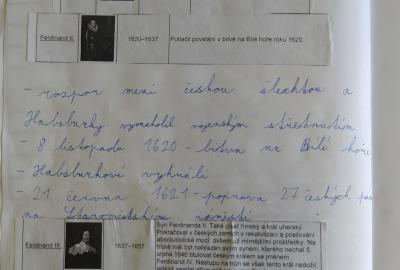 Ferdinand II. 1620–1637 Potlačil povstání v bitvě na Bílé hoře roku 1620.
- rozpor mezi českou šlechtou a
Habsburky vyvrcholil vojenským střetnutím
- 8 listopadu 1620 - bitva na Bílé hoře
- Habsburkové vyhráli
- 21 června 1621 - poprava 27 českých
na Staroměstském náměstí
Ferdinand III. 1637–1657
Syn Ferdinanda II. Také císař římský a král uherský.
Pokračoval v českých zemích v rekatolizaci a posilování
absolutistické moci, ovšem už mírnějšími prostředky. Na
trůně měl být nahrazen svým synem, kterého nechal 5.
srpna 1646 titulovat českým králem se jménem
Ferdinand IV. Nástupu na trůn se však tento král nedožil,